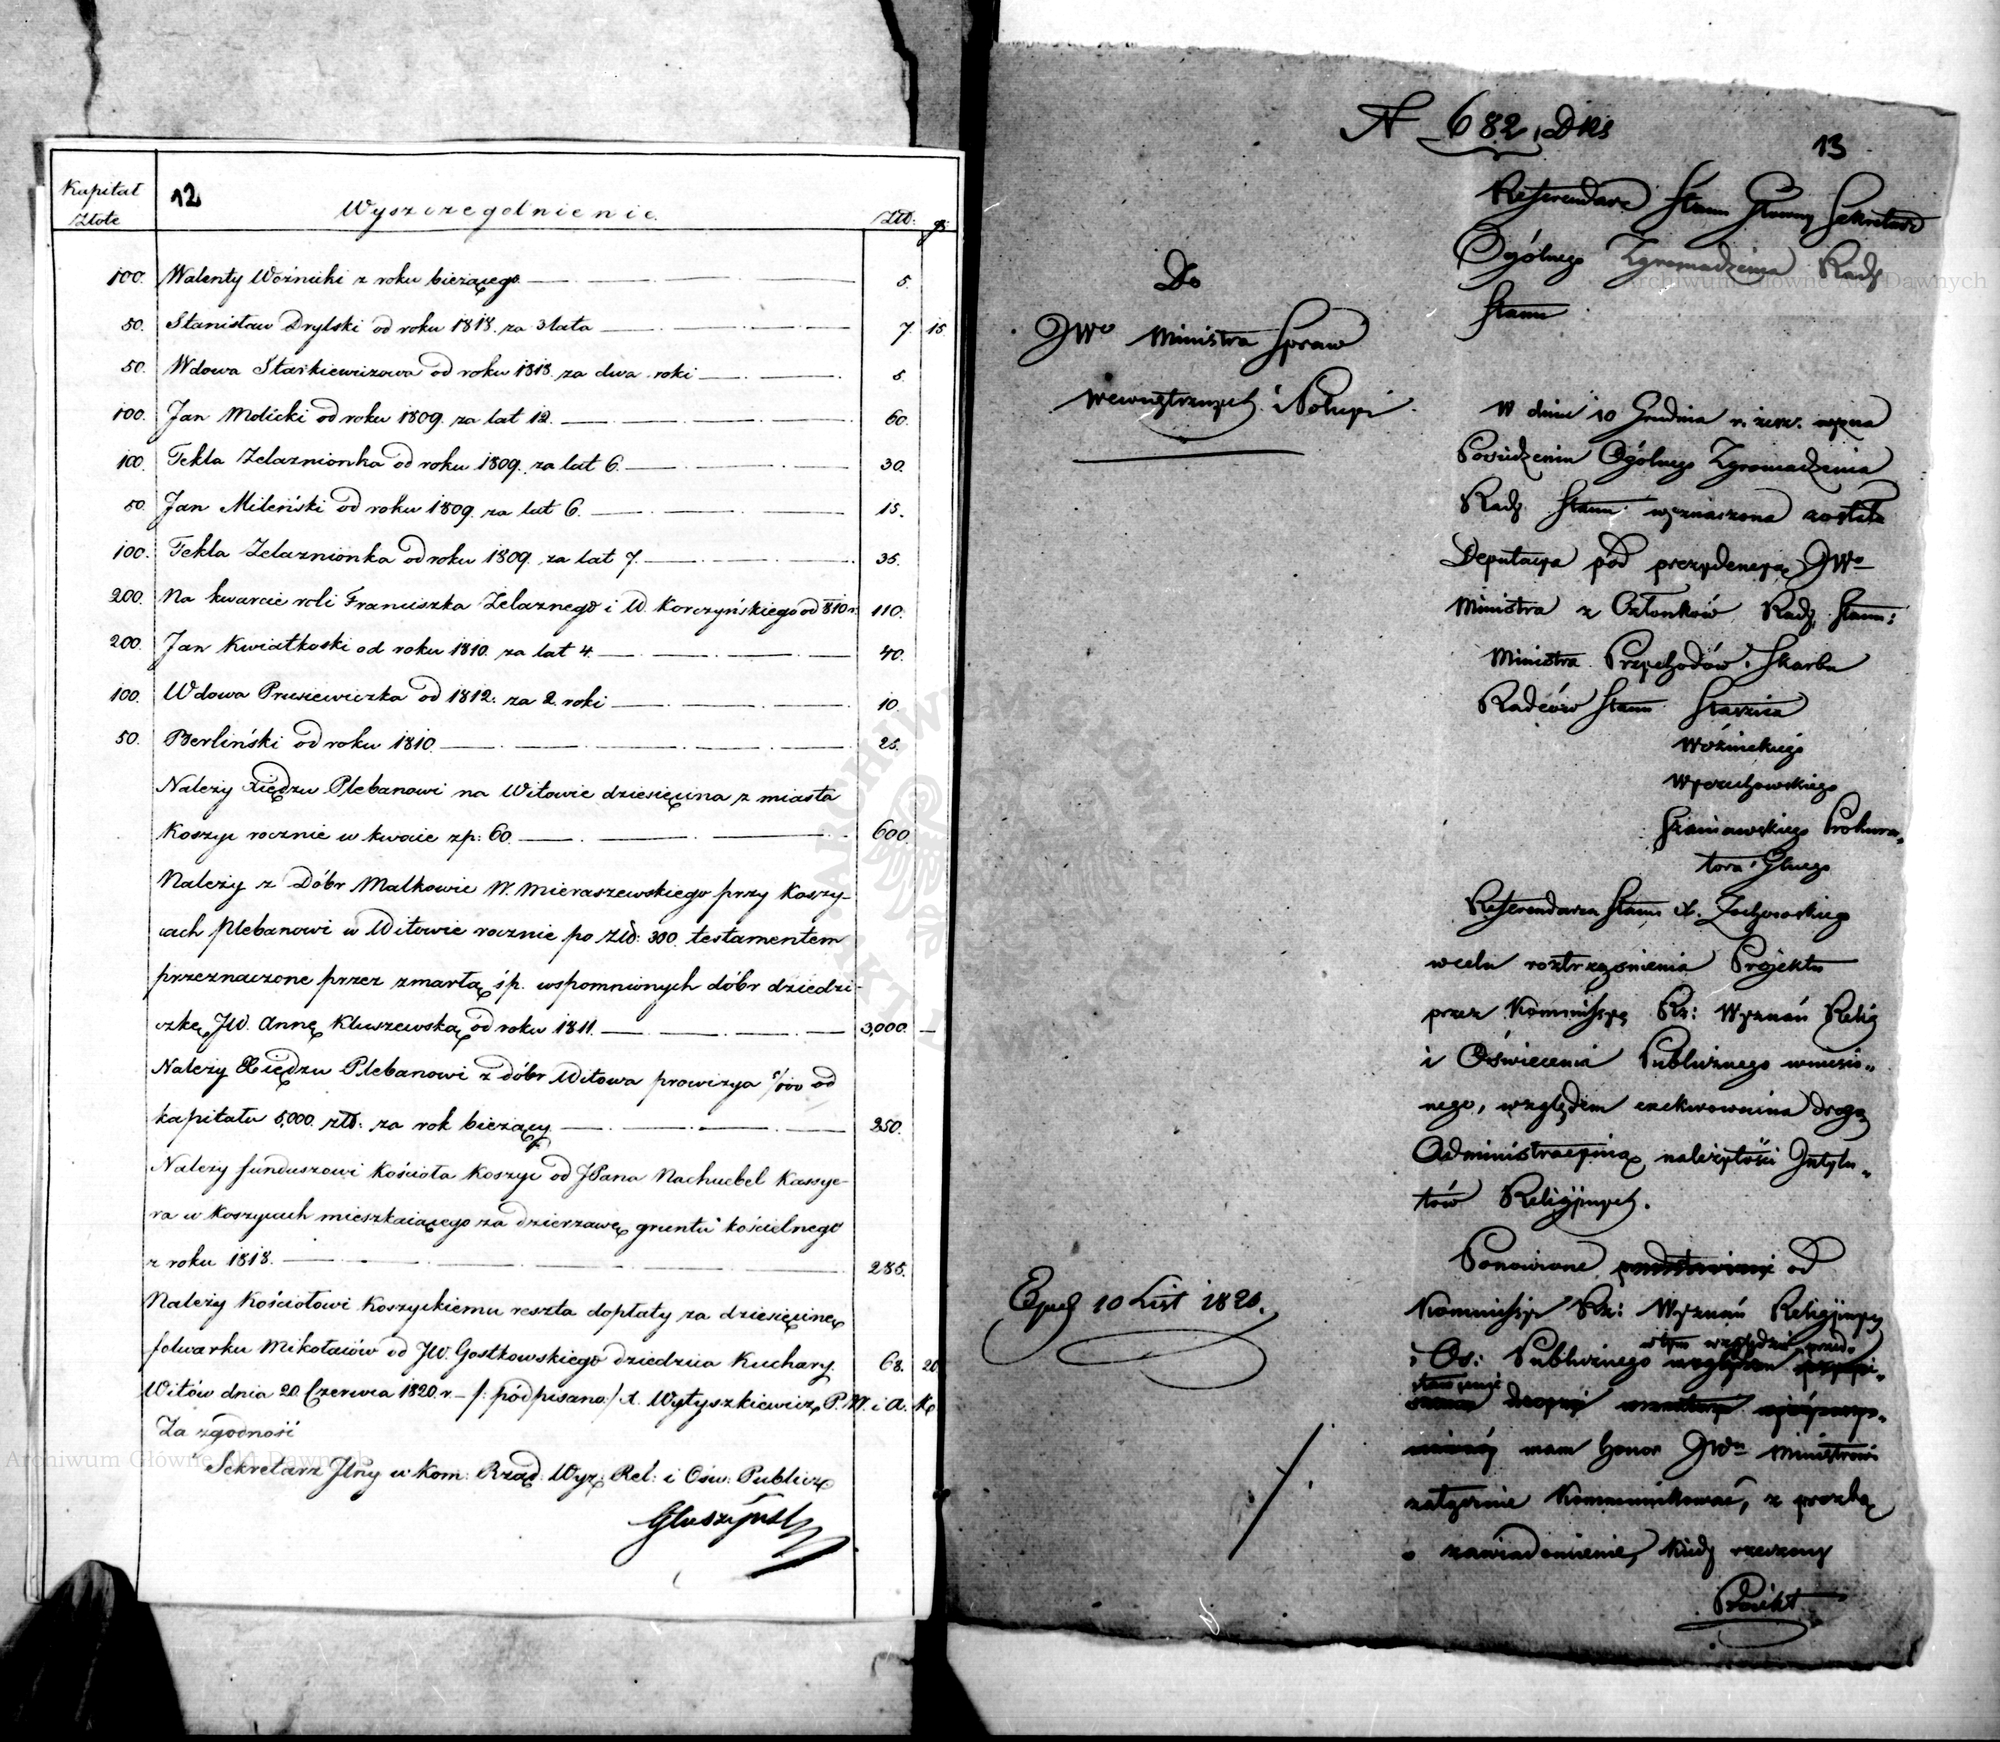 Kapitał
Złote
12
Wyszczegolnienie.
Złd: gr
100. Walenty Woźnicki z roku bieżącego 5.
50. Stanisław Drylski od roku 1818. za 3 lata 7. 15.
50. Wdowa Starkiewiczowa od roku 1818. za dwa roki 5.
100. Jan Molicki od roku 1809. za lat 12. 60.
100. Tekla Zelaznionka od roku 1809. za lat 6. 30.
50. Jan Mileński od roku 1809. za lat 6. 15.
100. Tekla Zelaznionka od roku 1809. za lat 7. 35.
200. Na kwarcie roli Franciszka Zelaznego i W. Korczyńskiego od 810 r. 110.
200. Jan Kwiatkoski od roku 1810. za lat 4. 40.
100. Wdowa Prusiewiczka od 1812: za 2. roki 10.
50. Berliński od roku 1810. 25.
Należy Xiędzu Plebanowi na Witowie dziesięcina z miasta
Koszyc rocznie w kwocie zp: 60. 600.
Należy z Dóbr Malkowic W. Mieraszewskiego przy Koszy-
cach Plebanowi w Witowie rocznie po Złd: 300. testamentem
przeznaczone przez zmarłą śp. wspomnionych dóbr dziedzi-
czkę JW. Annę Kluszewską od roku 1811. 3,000. —
Należy Xiędzu Plebanowi z dóbr Witowa prowizya 5/100 od
kapitału 5,000. złd: za rok bieżący 250.
Należy funduszowi Kościoła Koszyc od JPana Nachuebel Kassye-
ra w Koszycach mieszkaiącego za dzierzawę gruntu kościelnego
z roku 1818. 285.
Należy Kościołowi Koszyckiemu reszta dopłaty za dziesięcinę
folwarku Mikołaiów od JW. Gostkowskiego dziedzica Kuchary. 68. 20
Witów dnia 20. Czerwca 1820. r. — /: podpisano :/ A. Wytyszkiewicz P. W. i A. K.
Za zgodność
Sekretarz Jlny w Kom: Rząd: Wyz: Rel: i Ośw: Publicz
Głuszyński
N 682, DRS
13
Referendarz Stanu Głowny Sekretarz
Ogólnego Zgromadzenia Rady
Stanu
Do
JWo Ministra Spraw
Wewnętrznych i Policyi
W dniu 10 Grudnia r. zesz.
Posiedzeniu Ogólnego Zgromadzenia
Rady Stanu wyznaczona została
Deputacya pod prezydencyą JWo
Ministra z Członków Rady Stanu:
Ministra Przychodów i Skarbu
Radców Stanu Staszica
Woźnickiego
Wyczechowskiego
Szaniawskiego Prokura„
tora Głnego
Referendarza Stanu A. Zochowskiego
w celu roztrząśnienia Projektu
przez Kommissyą Rz: Wyznań Relig
i Oświecenia Publicznego wniesio„
nego, względem exekwowania drogą
Administracyiną należytości Intytu„
tów Religijnych.
Ponowione od
Kommissyi Rz: Wyznań Religijnych
i Oś: Publicznego
w tym względzie przed„
stawienie
mam honor JWu Ministrowi
załącznie Kommunikować, z prozbą
o zawiadomienie, kiedy rzeczony
Proiekt
Exped 10 List 1820.
Archiwum Główne Akt Dawnych
Archiwum Główne Akt Dawnych